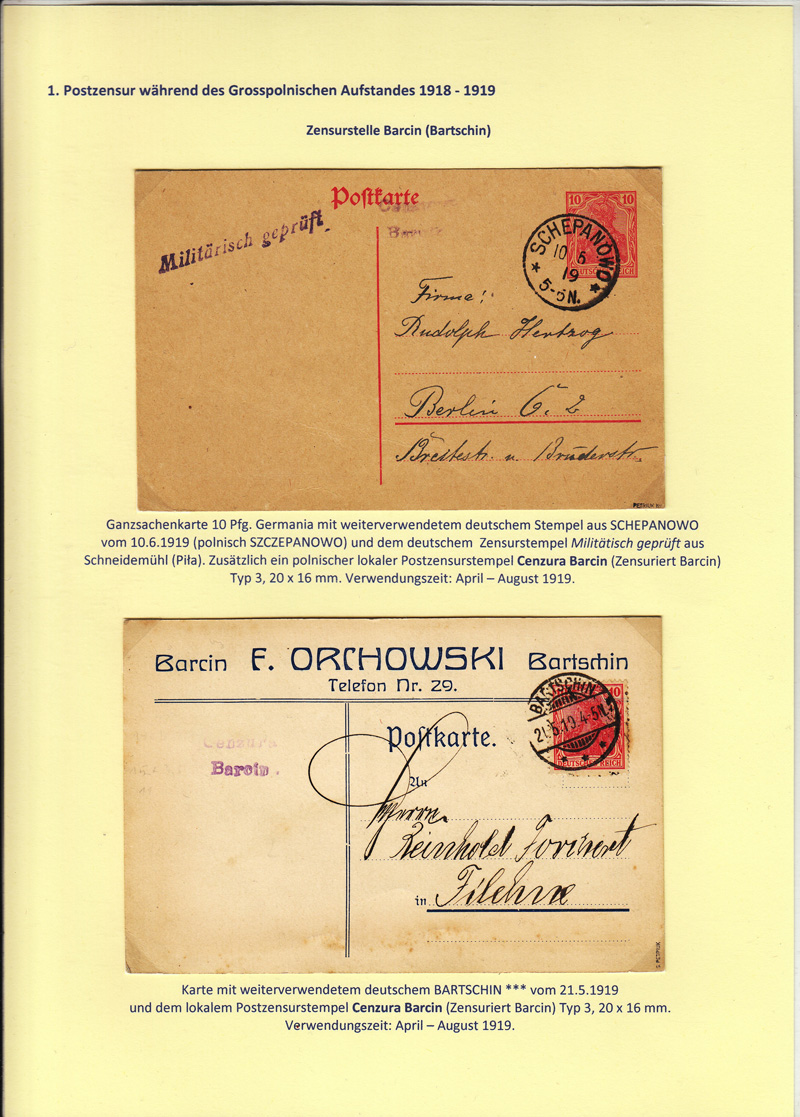 1. Postzensur während des Grosspolnischen Aufstandes 1918 - 1919
Zensurstelle Barcin (Bartschin)
Postkarte
Cenzura
Barcin
Militärisch geprüft.
10 10
DEUTSCHES REICH
SCHEPANOWO
10 6
19
5-6N.
Firma:
Rudolph Hertzog
Berlin C. 2
Breitestr. u. Brüderstr.
Ganzsachenkarte 10 Pfg. Germania mit weiterverwendetem deutschem Stempel aus SCHEPANOWO
vom 10.6.1919 (polnisch SZCZEPANOWO) und dem deutschem Zensurstempel Militätisch geprüft aus
Schneidemühl (Piła). Zusätzlich ein polnischer lokaler Postzensurstempel Cenzura Barcin (Zensuriert Barcin)
Typ 3, 20 x 16 mm. Verwendungszeit: April – August 1919.
Barcin F. ORCHOWSKI Bartschin
Telefon Nr. 29.
BARTSCHIN
21.5.19.4-5N.
10
DEUTSCHES REICH
Cenzura
Barcin.
Postkarte.
An
Herrn
Reinhold
in Filehne
Karte mit weiterverwendetem deutschem BARTSCHIN *** vom 21.5.1919
und dem lokalem Postzensurstempel Cenzura Barcin (Zensuriert Barcin) Typ 3, 20 x 16 mm.
Verwendungszeit: April – August 1919.